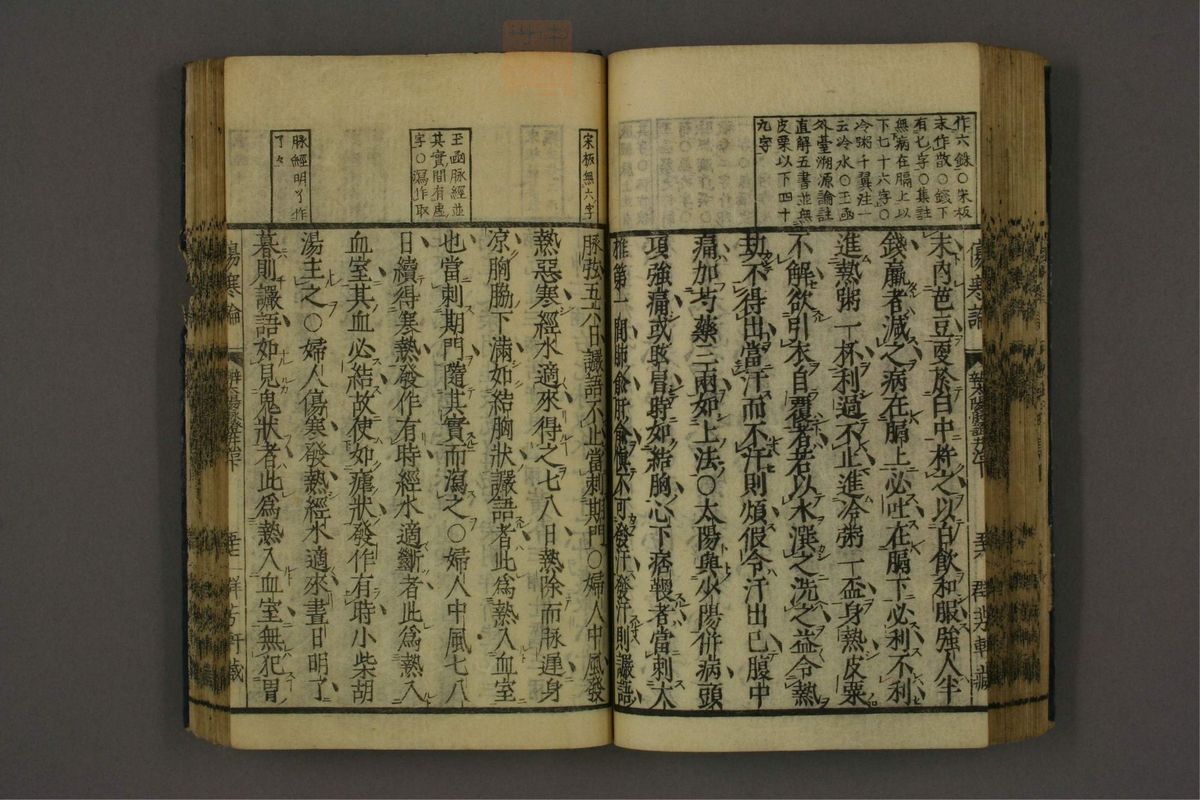 作六銖○宋板
末作散○錢下
有七字○集註
無病在膈上以
下七十六字○
冷粥千翼注一
云冷水○玉函
外臺溯源論註
直解五書並無
皮粟以下四十
九字
末內芭豆更於臼中杵之以白飲和服強人半
錢羸者減之病在膈上必吐在膈下必利不利
進熱粥一杯利過不止進冷粥一盃身熱皮粟
不解欲引衣自覆者若以水潠之洗之益令熱
劫不得出當汗而不汗則煩假令汗出已腹中
痛加芍藥三兩如上法○太陽與少陽併病頭
項強痛或眩冒時如結胸心下痞鞕者當刺大
椎第一間肺俞肝俞慎不可發汗發汗則讝語
宋板無六字
脉弦五六日讝語不止當刺期門○婦人中風發
熱惡寒經水適來得之七八日熱除而脉遲身
凉胸脇下滿如結胸狀讝語者此爲熱入血室
玉函脉經並
其實間有虛
字○瀉作取
也當刺期門隨其實而瀉之○婦人中風七八
日續得寒熱發作有時經水適斷者此爲熱入
血室其血必結故使如瘧狀發作有時小柴胡
脉經明了作
了々
湯主之○婦人傷寒發熱經水適來晝日明了
暮則讝語如見鬼狀者此爲熱入血室無犯胃
傷寒論
群芳軒藏